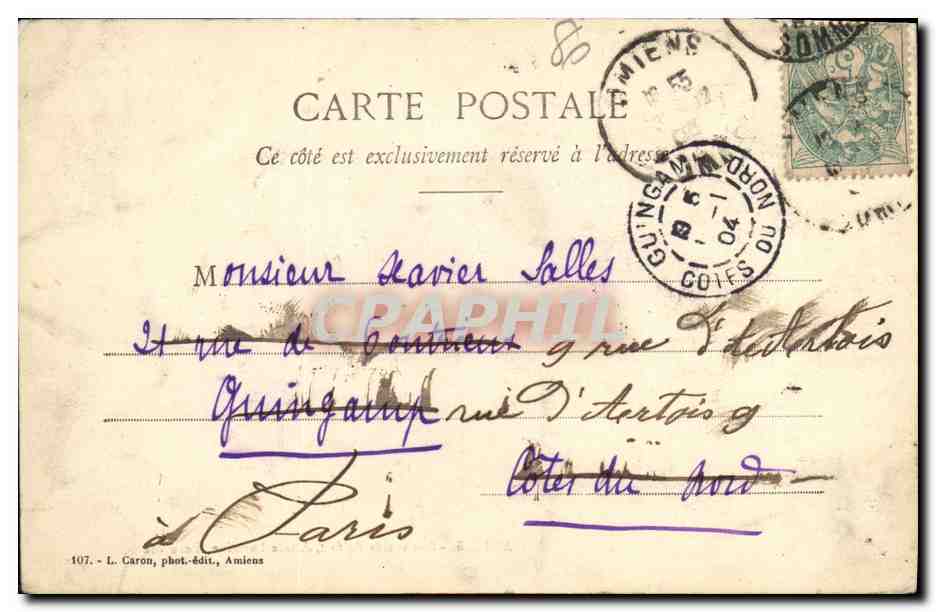 AMIENS
SOMME
CARTE POSTALE
Ce côté est exclusivement réservé à l'adresse
GUINGAMP COTES DU NORD
5 -1 04
Monsieur Xavier Salles
CPAPHIL
21 rue de 9 rue d'Artois
Guingamp rue d'Artois 9
Côtes du Nord
à Paris
107. - L. Caron, phot.-édit., Amiens